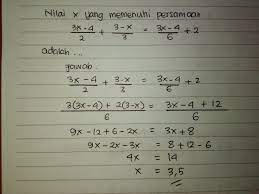 Nilai x yang memenuhi persamaan
(3x-4)/2 + (3-x)/3 = (3x-4)/6 + 2
adalah ...
jawab.
(3x-4)/2 + (3-x)/3 = (3x-4)/6 + 2
(3(3x-4) + 2(3-x))/6 = (3x-4 + 12)/6
9x - 12 + 6 - 2x = 3x + 8
9x - 2x - 3x = 8 + 12 - 6
4x = 14
x = 3,5